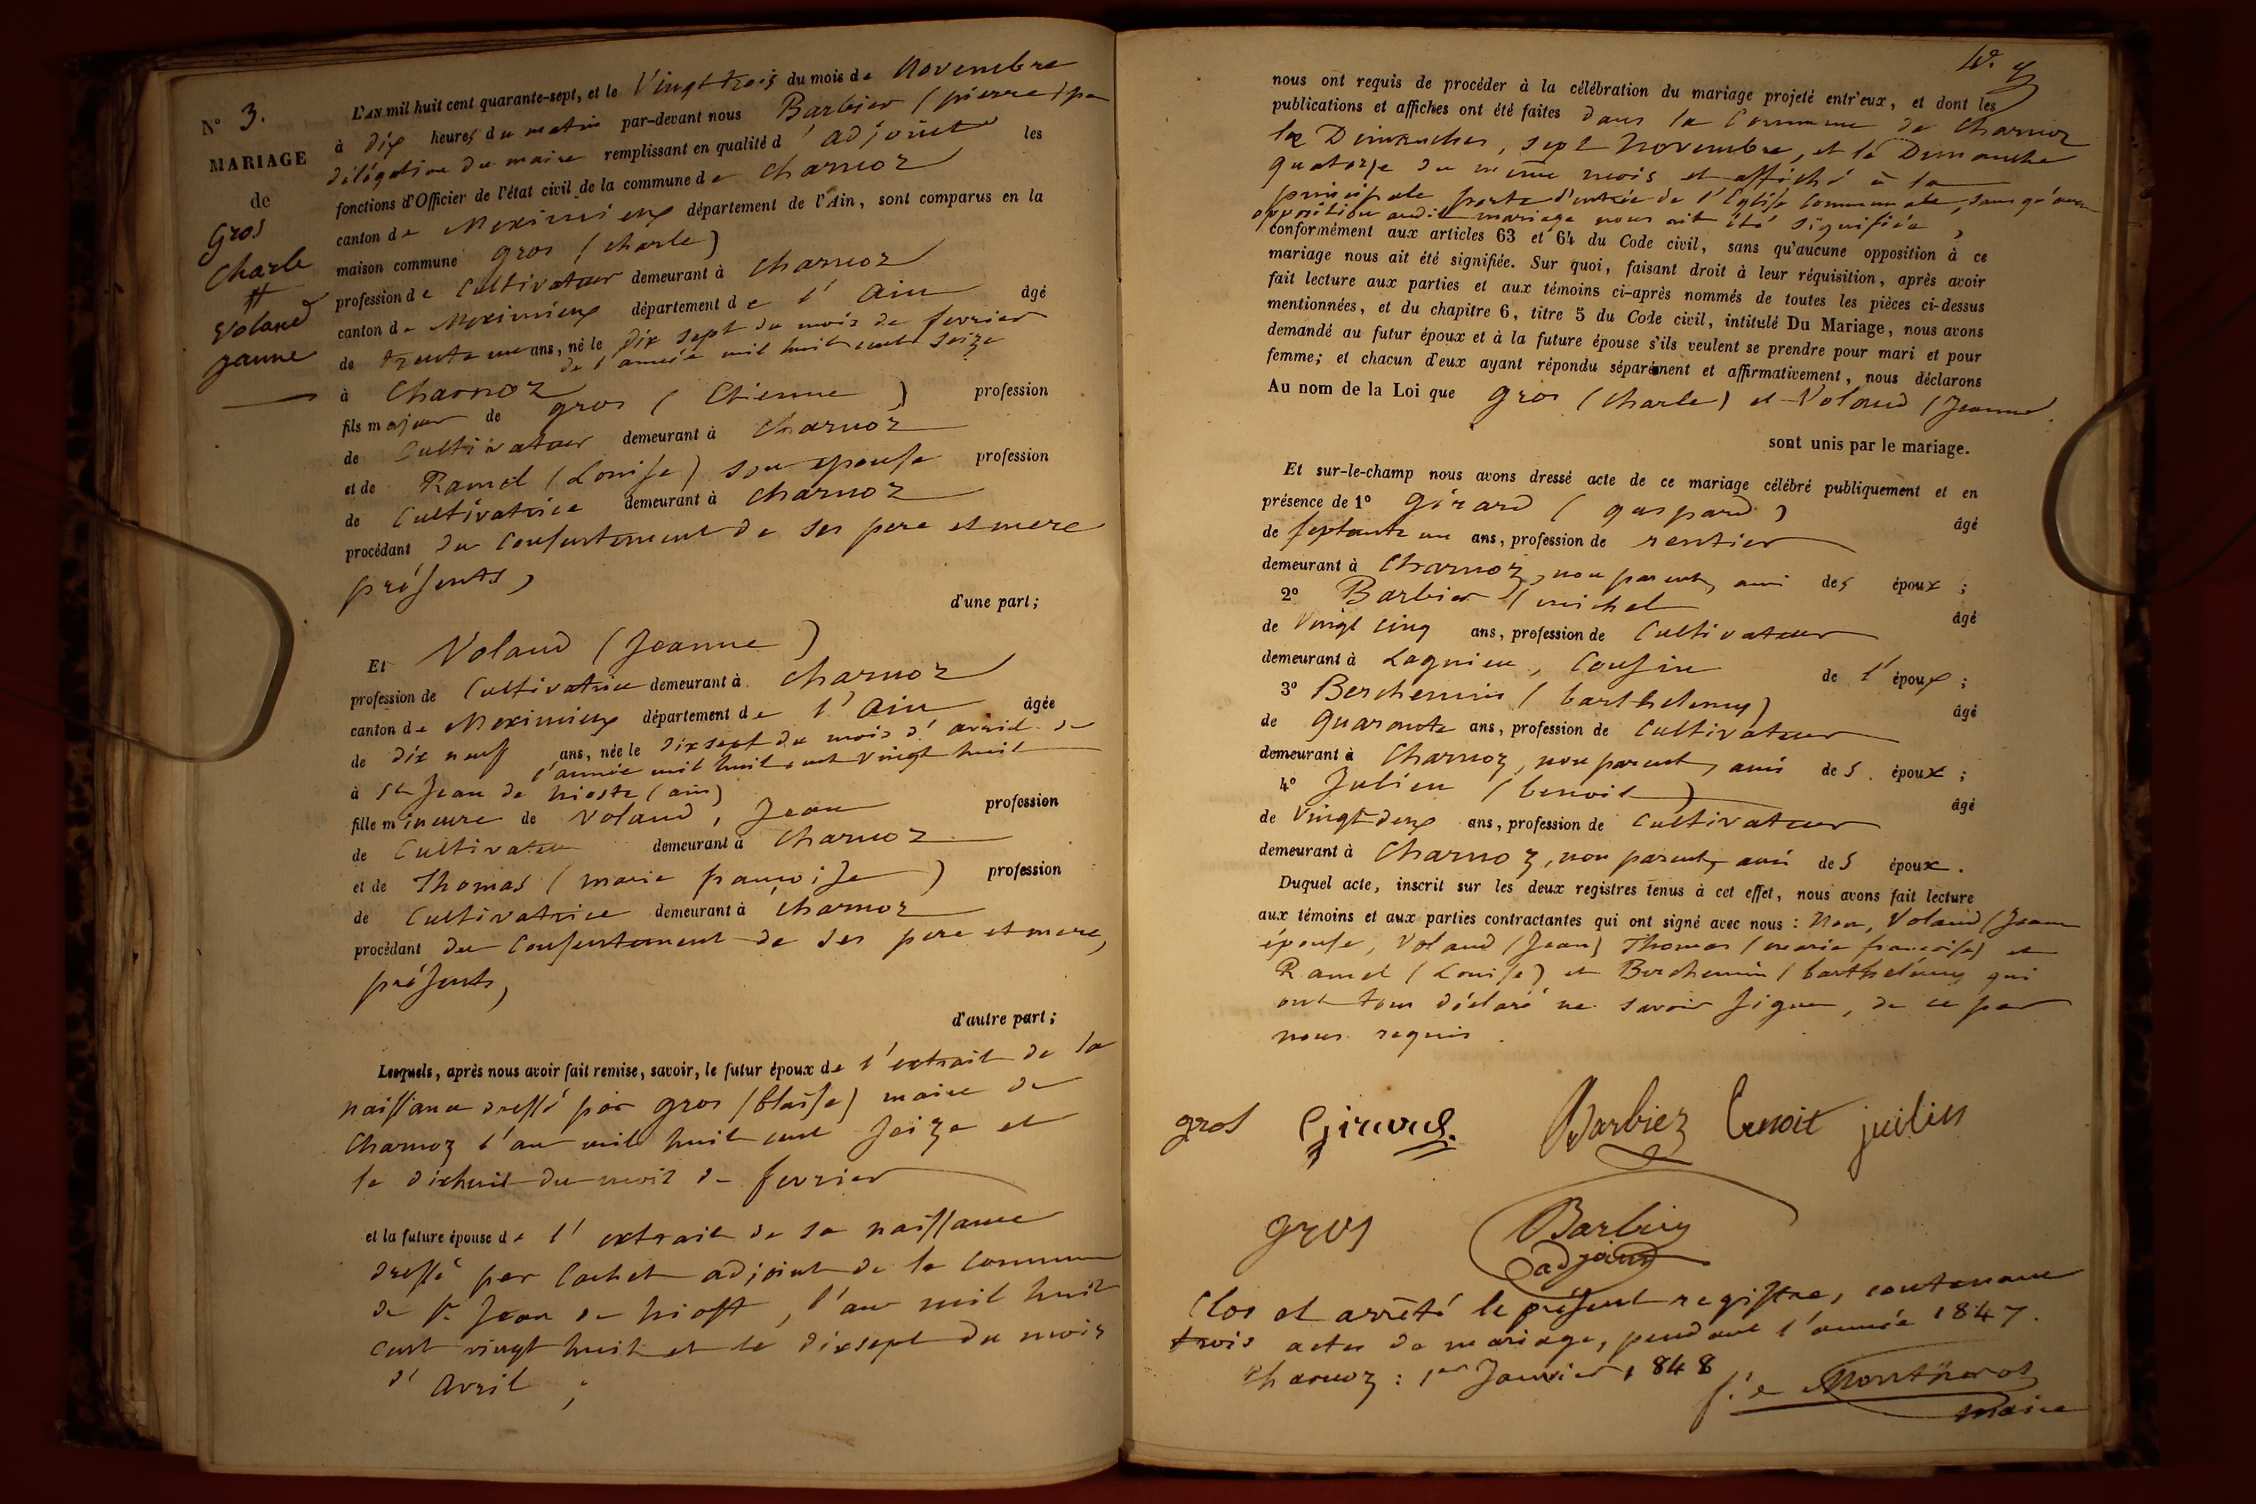 N° 3.
MARIAGE
de
Gros
Charle
et
Voland
Jeanne
L'AN mil huit cent quarante-sept, et le Vingt trois du mois de Novembre
à dix heures du matin par-devant nous Barbier (pierre) par
délégation du maire remplissant en qualité d'adjoint les
fonctions d'Officier de l'état civil de la commune de Charnoz
canton de Meximieux département de l'Ain, sont comparus en la
maison commune gros (charle)
profession de Cultivateur demeurant à Charnoz
canton de Meximieux département de l'Ain âgé
de trente un ans, né le dix sept du mois de fevrier
de l'année mil huit cent seize
à Charnoz
fils majeur de gros (Etienne) profession
de Cultivateur demeurant à Charnoz
et de Ramel (Louise) son epouse profession
de Cultivatrice demeurant à Charnoz
procédant du Consentement de ses pere et mere
présents,
d'une part;
Et Voland (Jeanne)
profession de Cultivatrice demeurant à Charnoz
canton de Meximieux département de l'Ain âgée
de dix neuf ans, née le dixsept du mois d'avril de
l'année mil huit cent vingt huit
à St Jean de Nioste (ain)
fille mineure de Voland, Jean profession
de Cultivateu demeurant à Charnoz
et de Thomas (marie françoise) profession
de Cultivatrice demeurant à Charnoz
procédant du Consentement de ses pere et mere,
présents,
d'autre part;
Lesquels, après nous avoir fait remise, savoir, le futur époux de l'extrait de la
naissance dressé par gros (blaise) maire de
Charnoz l'an mil huit cent seize et
le dixhuit du mois de fevrier
et la future épouse de l'extrait de sa naissance
dressé par Cochet adjoint de la Commun
de St Jean de Niost, l'an mil huit
cent vingt huit et le dixsept du mois
d'avril;
nous ont requis de procéder à la célébration du mariage projeté entr'eux, et dont les
publications et affiches ont été faites dans la Commune de Charnoz
les Dimanches, sept Novembre, et le Dimanche
quatorze du même mois et affiché à la
principale porte d'entrée de l'Eglise Communale, sans qu'aucune
opposition audit mariage nous ait été signifiée,
conformément aux articles 63 et 64 du Code civil, sans qu'aucune opposition à ce
mariage nous ait été signifiée. Sur quoi, faisant droit à leur réquisition, après avoir
fait lecture aux parties et aux témoins ci-après nommés de toutes les pièces ci-dessus
mentionnées, et du chapitre 6, titre 5 du Code civil, intitulé Du Mariage, nous avons
demandé au futur époux et à la future épouse s'ils veulent se prendre pour mari et pour
femme; et chacun d'eux ayant répondu séparément et affirmativement, nous déclarons
Au nom de la Loi que gros (Charle) et Voland (Jeanne
sont unis par le mariage.
Et sur-le-champ nous avons dressé acte de ce mariage célébré publiquement et en
présence de 1° Girard (gaspard) âgé
de septante un ans, profession de rentier
demeurant à Charnoz, non parent, ami des époux;
2° Barbier (michel âgé
de Vingt cinq ans, profession de Cultivateur
demeurant à Lagnieu, Cousin de l'époux;
3° Berchemin (barthelemy) âgé
de quarante ans, profession de Cultivateur
demeurant à Charnoz, non parent, ami des époux;
4° Julien (benoit) âgé
de Vingt deux ans, profession de Cultivateur
demeurant à Charnoz, non parent, ami des époux.
Duquel acte, inscrit sur les deux registres tenus à cet effet, nous avons fait lecture
aux témoins et aux parties contractantes qui ont signé avec nous: Non, Voland (Jeanne
épouse, Voland (Jean) Thomas (marie françoise) et
Ramel (Louise) et Berchemin (barthelémy qui
ont tous déclaré ne savoir signer, de ce par
nous requis.
gros Girard. Barbiez benoit juilien
gros Barbier
adjoint
Clos et arrêté le présent registre, contenant
trois actes de mariage, pendant l'année 1847.
Charnoz: 1er Janvier 1848
maire